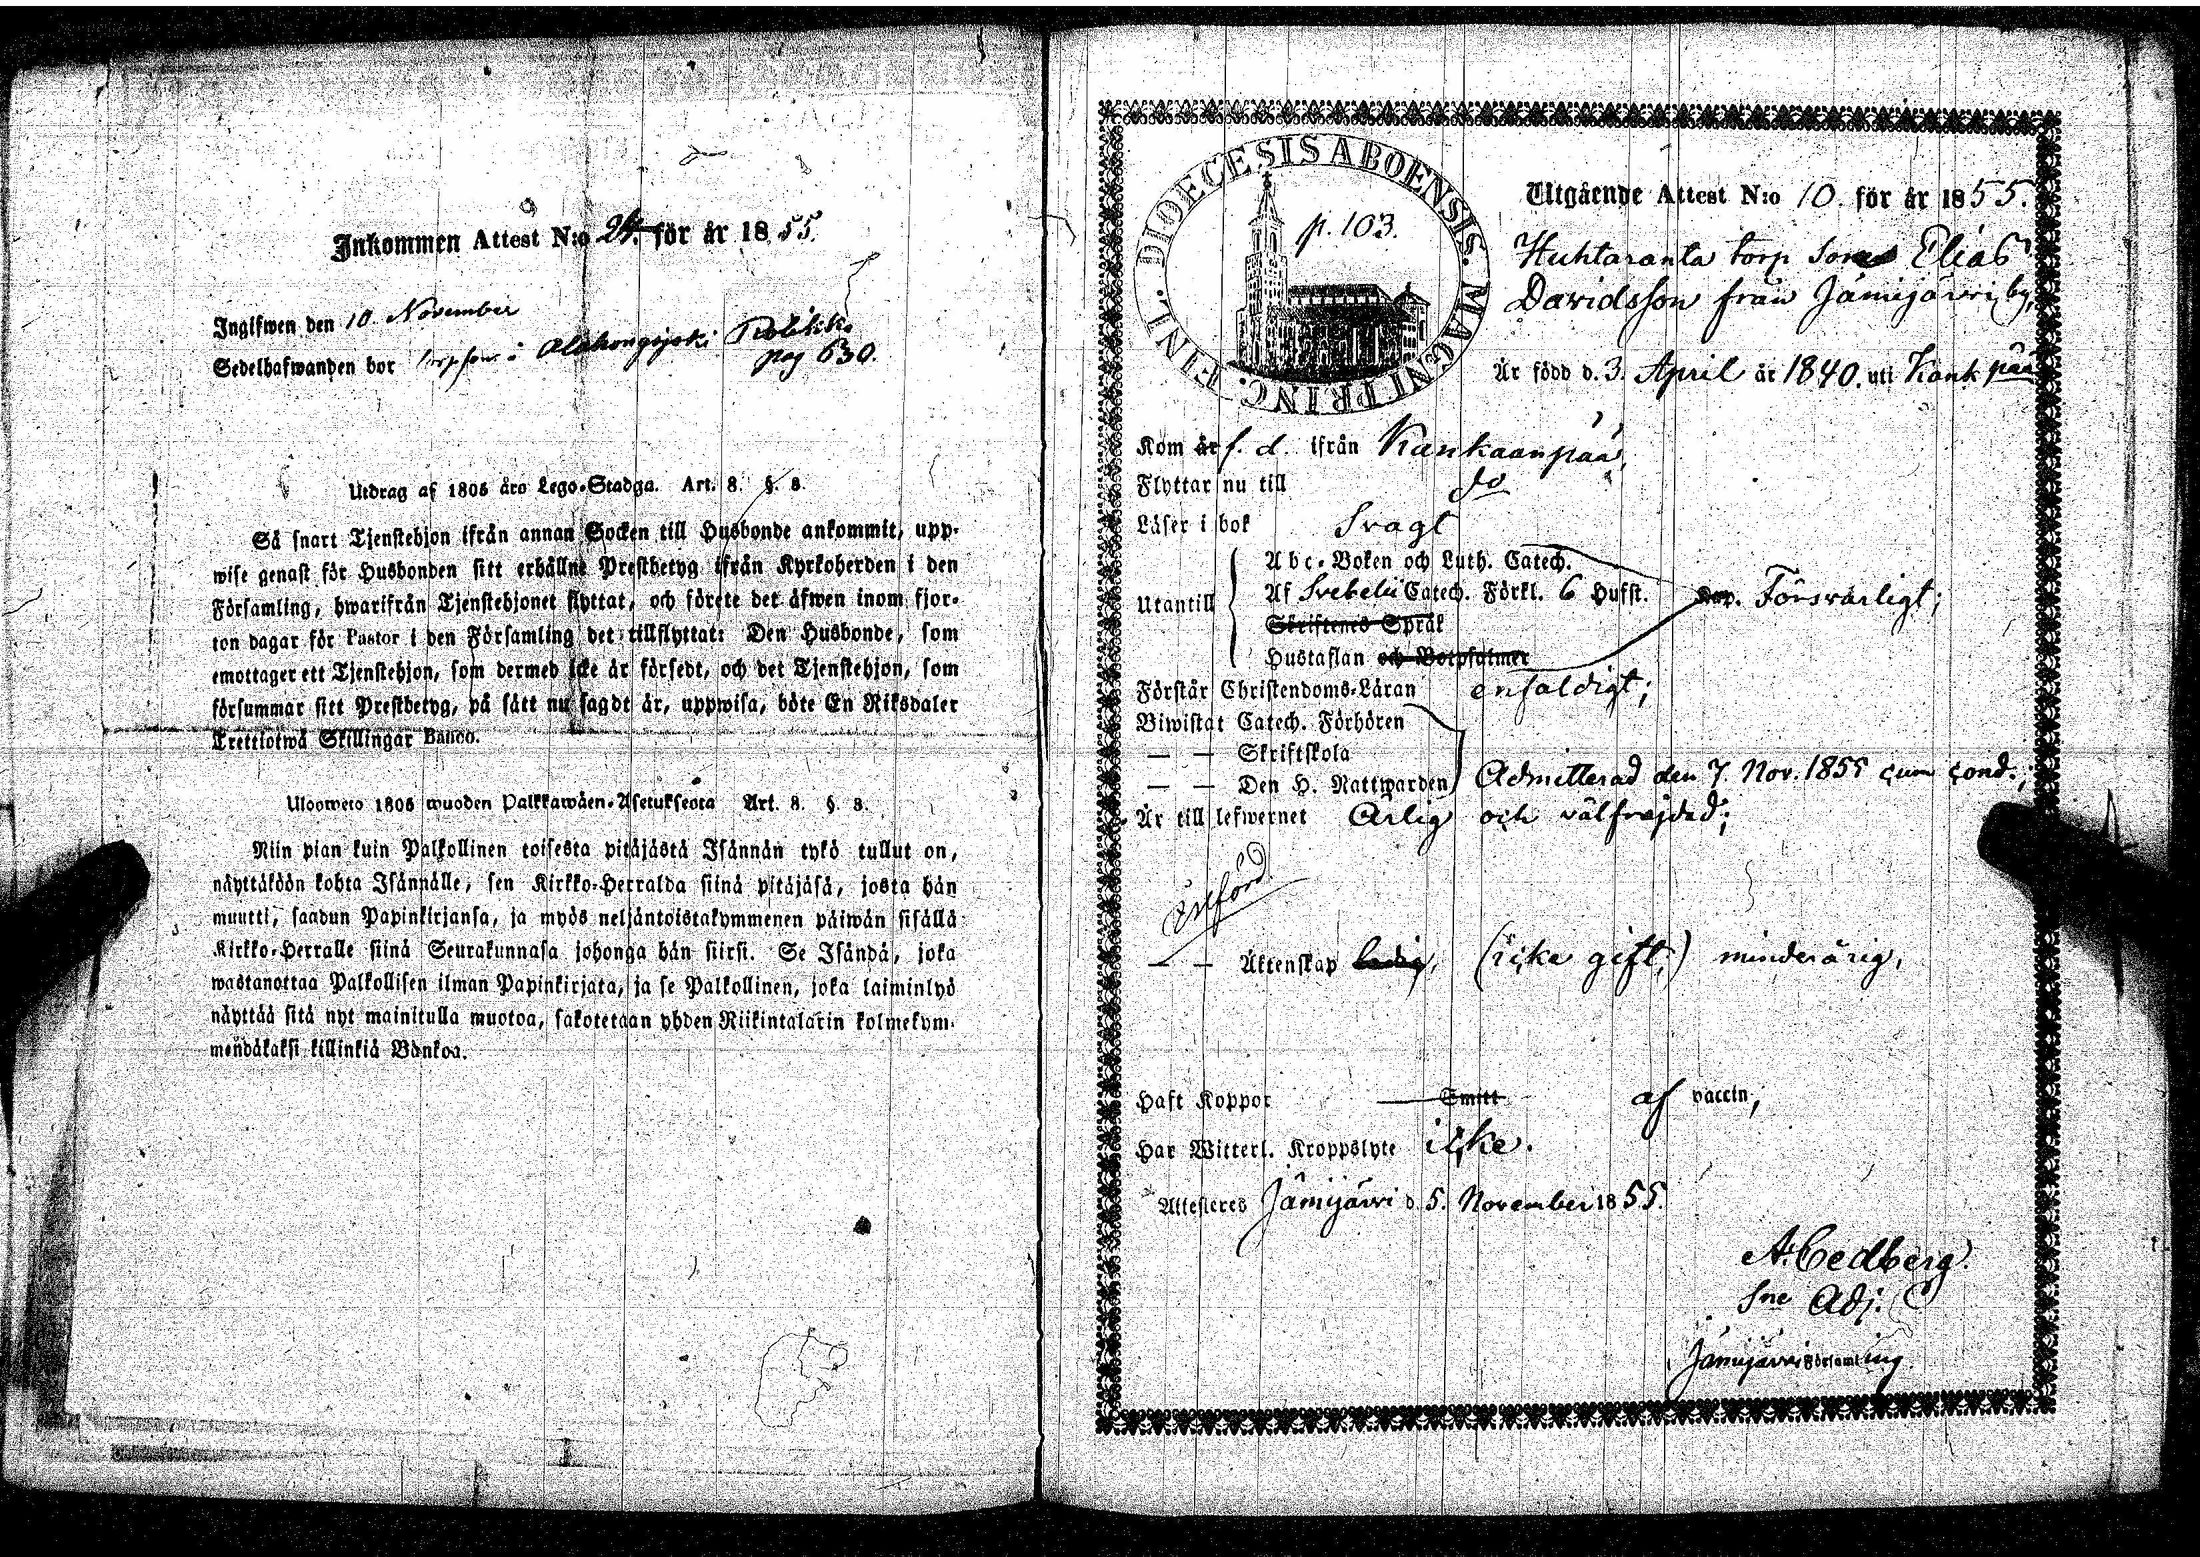 Inkommen Attest N:o 24. för år 1855.
Ingifwen den 10. November
Sedelhafwanden bor torpson i Alahongojoki
pag 630.
Utdrag af 1805 åro Lego-Stadga. Art. 8. §. 8.
Så snart Tjenstehjon ifrån annan Socken till Husbonde ankommit, upp-
wise genast för Husbonden sitt erhållne Prestbetyg ifrån Kyrkoherden i den
Församling, hwarifrån Tjenstehjonet flyttat, och förete det äfwen inom fjor-
ton dagar för Pastor i den Församling det tillflyttat: Den Husbonde, som
emottager ett Tjenstehjon, som dermed icke är försedt, och det Tjenstehjon, som
försummar sitt Prestbetyg, på sätt nu sagdt är, uppwisa, böte En Riksdaler
Trettiotwå Skillingar Banco.
Ulooweto 1805 wuoden Palkkawäen-Asetuksesta Art. 8. §. 8.
Niin pian kuin Palkollinen toisesta pitäjästä Isännän tykö tullut on,
näyttäköön kohta Isännälle, sen Kirkko-Herralda siinä pitäjäsä, josta hän
muutti, saadun Papinkirjansa, ja myös neljäntoistakymmenen päiwän sisällä
Kirkko-Herralle siinä Seurakunnasa johonga hän siirsi. Se Isändä, joka
wastanottaa Palkollisen ilman Papinkirjata, ja se Palkollinen, joka laiminlyö
näyttää sitä nyt mainitulla muotoa, sakotetaan yhden Riikintalarin kolmekym-
mendäkaksi killinkiä Bankoa.
DIOECESIS ABOENSIS. MAGNI PRINC. FINL.
p. 103.
Utgående Attest N:o 10. för år 1855.
Huhtaranta torp son Elias
Davidsson från Jämijärvi by,
Är född d. 3. April år 1840. uti Kankpää
Kom år f. d. ifrån Kankaanpää,
Flyttar nu till do
Läser i bok Svagt
Utantill
Abc-Boken och Luth. Catech.
Af Svebelii Catech. Förkl. 6 Hufst. Försvarligt;
Skriftenes Språk
Hustaflan och Botpsalmer
Förstår Christendoms-Läran enfaldigt;
Biwistat Catech. Förhören
— — Skriftskola
— — Den H. Nattwarden Admitterad den 7. Nov. 1855 cum cond.;
Är till lefwernet Ärlig och välfrejdad;
— — Äktenskap ledig, (icke gift,) minderårig,
Haft Koppor Smitt af vaccin,
Har Witterl. Kroppslyte icke.
Attesteres Jämijärvi d. 5. November 1855.
A. Cedberg.
Sne Adj.
Jämijärvi Församling.